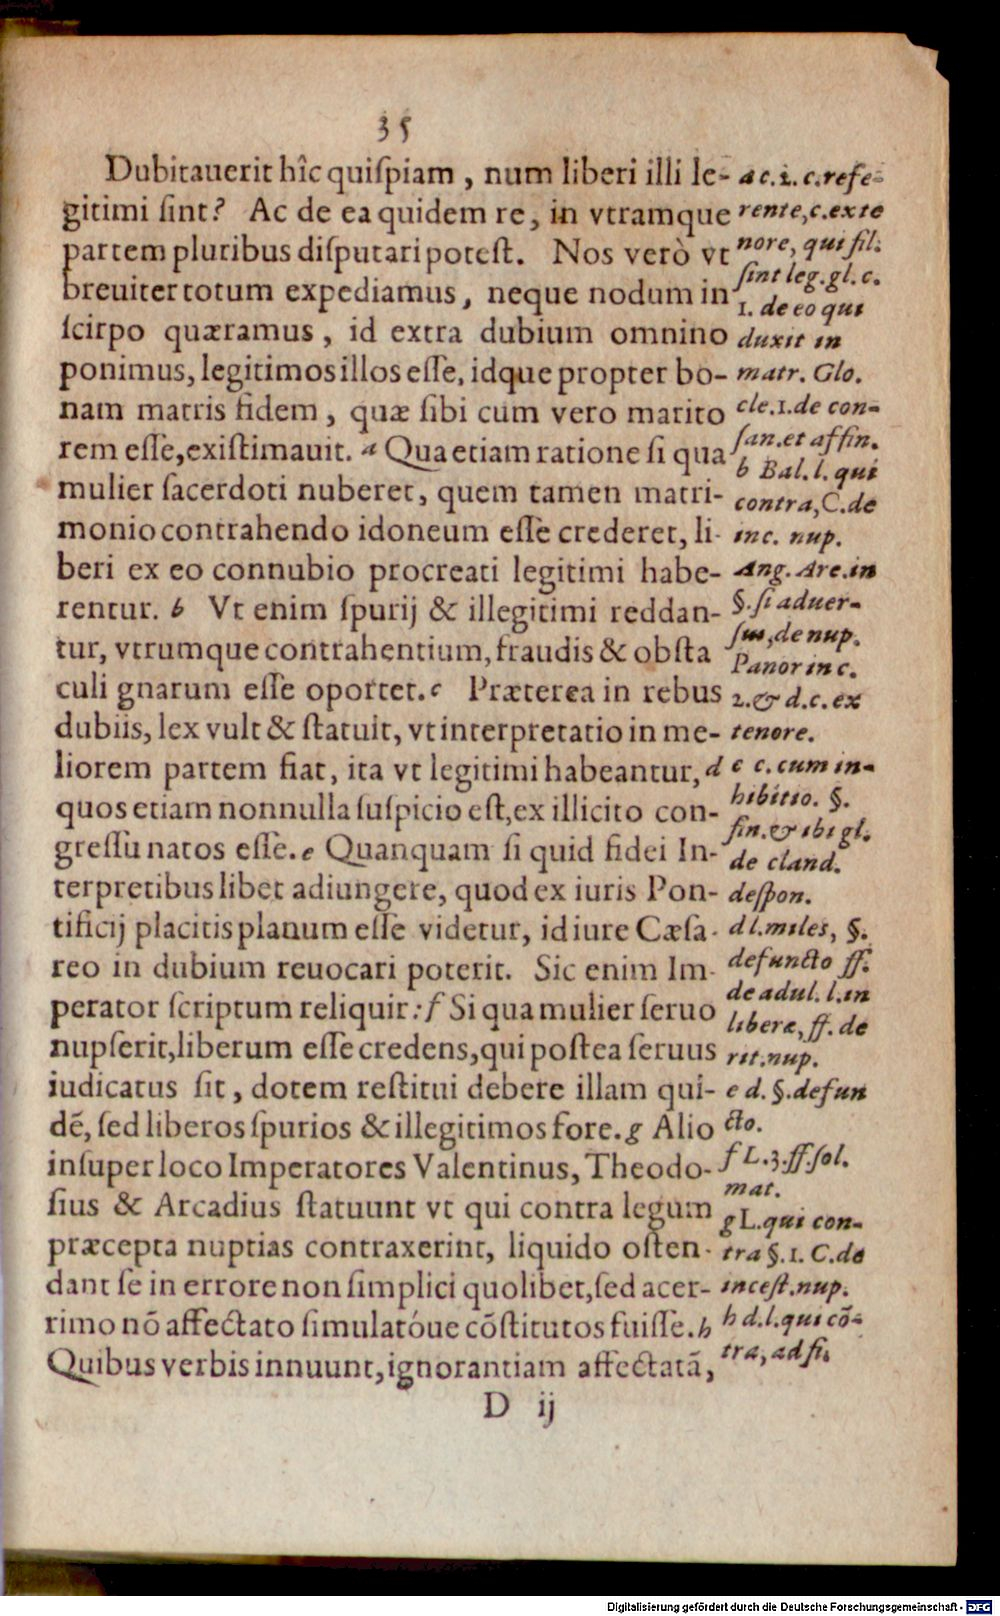 35
Dubitauerit hîc quiſpiam, num liberi illi le-
gitimi ſint? Ac de ea quidem re, in vtramque
partem pluribus diſputari poteſt. Nos verò vt
breuiter totum expediamus, neque nodum in
ſcirpo quæramus, id extra dubium omnino
ponimus, legitimos illos eſſe, idque propter bo-
nam matris fidem, quæ ſibi cum vero marito
rem eſſe, exiſtimauit. a Qua etiam ratione ſi qua
mulier ſacerdoti nuberet, quem tamen matri-
monio contrahendo idoneum eſſe crederet, li-
beri ex eo connubio procreati legitimi habe-
rentur. b Vt enim ſpurij & illegitimi reddan-
tur, vtrumque contrahentium, fraudis & obſta
culi gnarum eſſe oportet. c Præterea in rebus
dubiis, lex vult & ſtatuit, vt interpretatio in me-
liorem partem fiat, ita vt legitimi habeantur, d
quos etiam nonnulla ſuſpicio eſt, ex illicito con-
greſſu natos eſſe. e Quanquam ſi quid fidei In-
terpretibus libet adiungere, quod ex iuris Pon-
tificij placitis planum eſſe videtur, id iure Cæſa-
reo in dubium reuocari poterit. Sic enim Im-
perator ſcriptum reliquit: f Si qua mulier ſeruo
nupſerit, liberum eſſe credens, qui poſtea ſeruus
iudicatus ſit, dotem reſtitui debere illam qui-
dẽ, ſed liberos ſpurios & illegitimos fore. g Alio
inſuper loco Imperatores Valentinus, Theodo-
ſius & Arcadius ſtatuunt vt qui contra legum
præcepta nuptias contraxerint, liquido oſten-
dant ſe in errore non ſimplici quolibet, ſed acer-
rimo nõ affectato ſimulatóue cõſtitutos fuiſſe. h
Quibus verbis innuunt, ignorantiam affectatã,
D ij
a c. i. c. refe-
rente, c. ex te
nore, qui fil.
ſint leg. gl. c.
1. de eo qui
duxit in
matr. Glo.
cle. 1. de con-
ſan. et affin.
b Bal. l. qui
contra, C. de
inc. nup.
Ang. Are. in
§. ſi aduer-
ſus, de nup.
Panor in c.
2. & d. c. ex
tenore.
c c. cum in-
hibitio. §.
fin. & ibi gl.
de cland.
deſpon.
d l. miles, §.
defuncto ff.
de adul. l. in
liberæ, ff. de
rit. nup.
e d. §. defun
cto.
f L. 3. ff. ſol.
mat.
g L. qui con-
tra §. 1. C. de
inceſt. nup.
h d. l. qui cõ-
tra, ad fi.
Digitalisierung gefördert durch die Deutsche Forschungsgemeinschaft - DFG